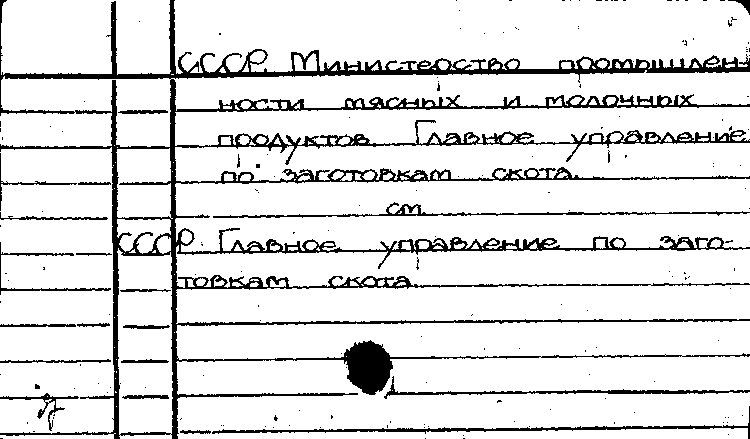 СССР. Министерство промышлен-
ности мясных и молочных
продуктов. Главное управление
по заготовкам скота.
см.
СССР. Главное управление по заго-
товкам скота.